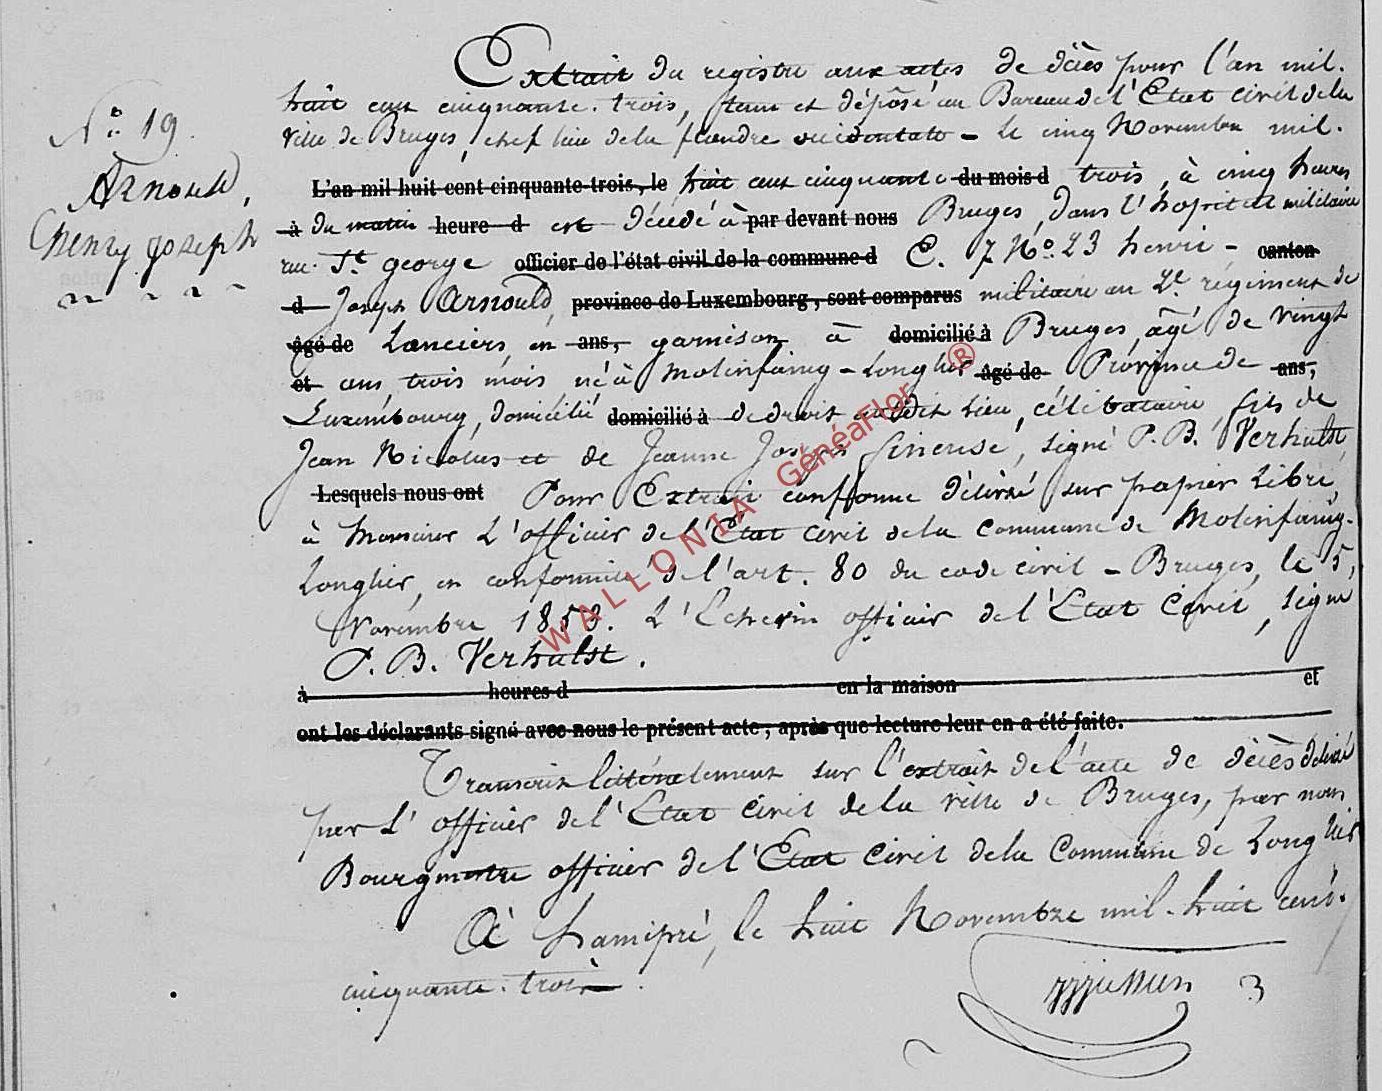 N.° 19.
Arnould,
henry joseph
Extrait du registre aux actes de décès pour l'an mil.
huit cent cinquante. trois, tenu et déposé au Bureau de l'Etat civil de la
ville de Bruges, chef lieu de la flandre occidentale - Le cinq Novembre mil.
L'an mil huit cent cinquante-trois, le huit cent cinquante du mois d trois, à cinq heures
à du matin heure d est décédé à par devant nous Bruges, dans l'hopital militaire
rue St george officier de l'état civil de la commune d C. 7 N.° 23 henri - canton
d Joseph Arnould, province de Luxembourg, sont comparus militaire au 2e régiment de
âgé de Lanciers, en ans, garnison à domicilié à Bruges, âgé de vingt
et ans trois mois né à Molinfaing - Longlier âgé de Province de ans,
Luxembourg, domicilié domicilié à de droit audit lieu, célibataire, fils de
Jean Nicolas et de Jeanne Joseph, signé P. B. Verhulst
Lesquels nous ont Pour Extrait conforme délivré sur papier Libre
à Monsieur L'officier de l'Etat civil de la Commune de Molinfaing-
Longlier, en conformité de l'art. 80 du code civil - Bruges, le 5,
Novembre 1853. L'Echevin officier de l'Etat Civil, signé
P. B. Verhulst.
à heures d en la maison et
ont les déclarants signé avec nous le présent acte, après que lecture leur en a été faite.
Transcrit littéralement sur l'extrait de l'acte de décès délivré
par L'officier de l'Etat civil de la ville de Bruges, par nous
Bourgmestre officier de l'Etat Civil de la Commune de Longlier
A hamipré, le huit Novembre mil. huit cent.
cinquante. trois.
WALLONIA GénéaFlor ®